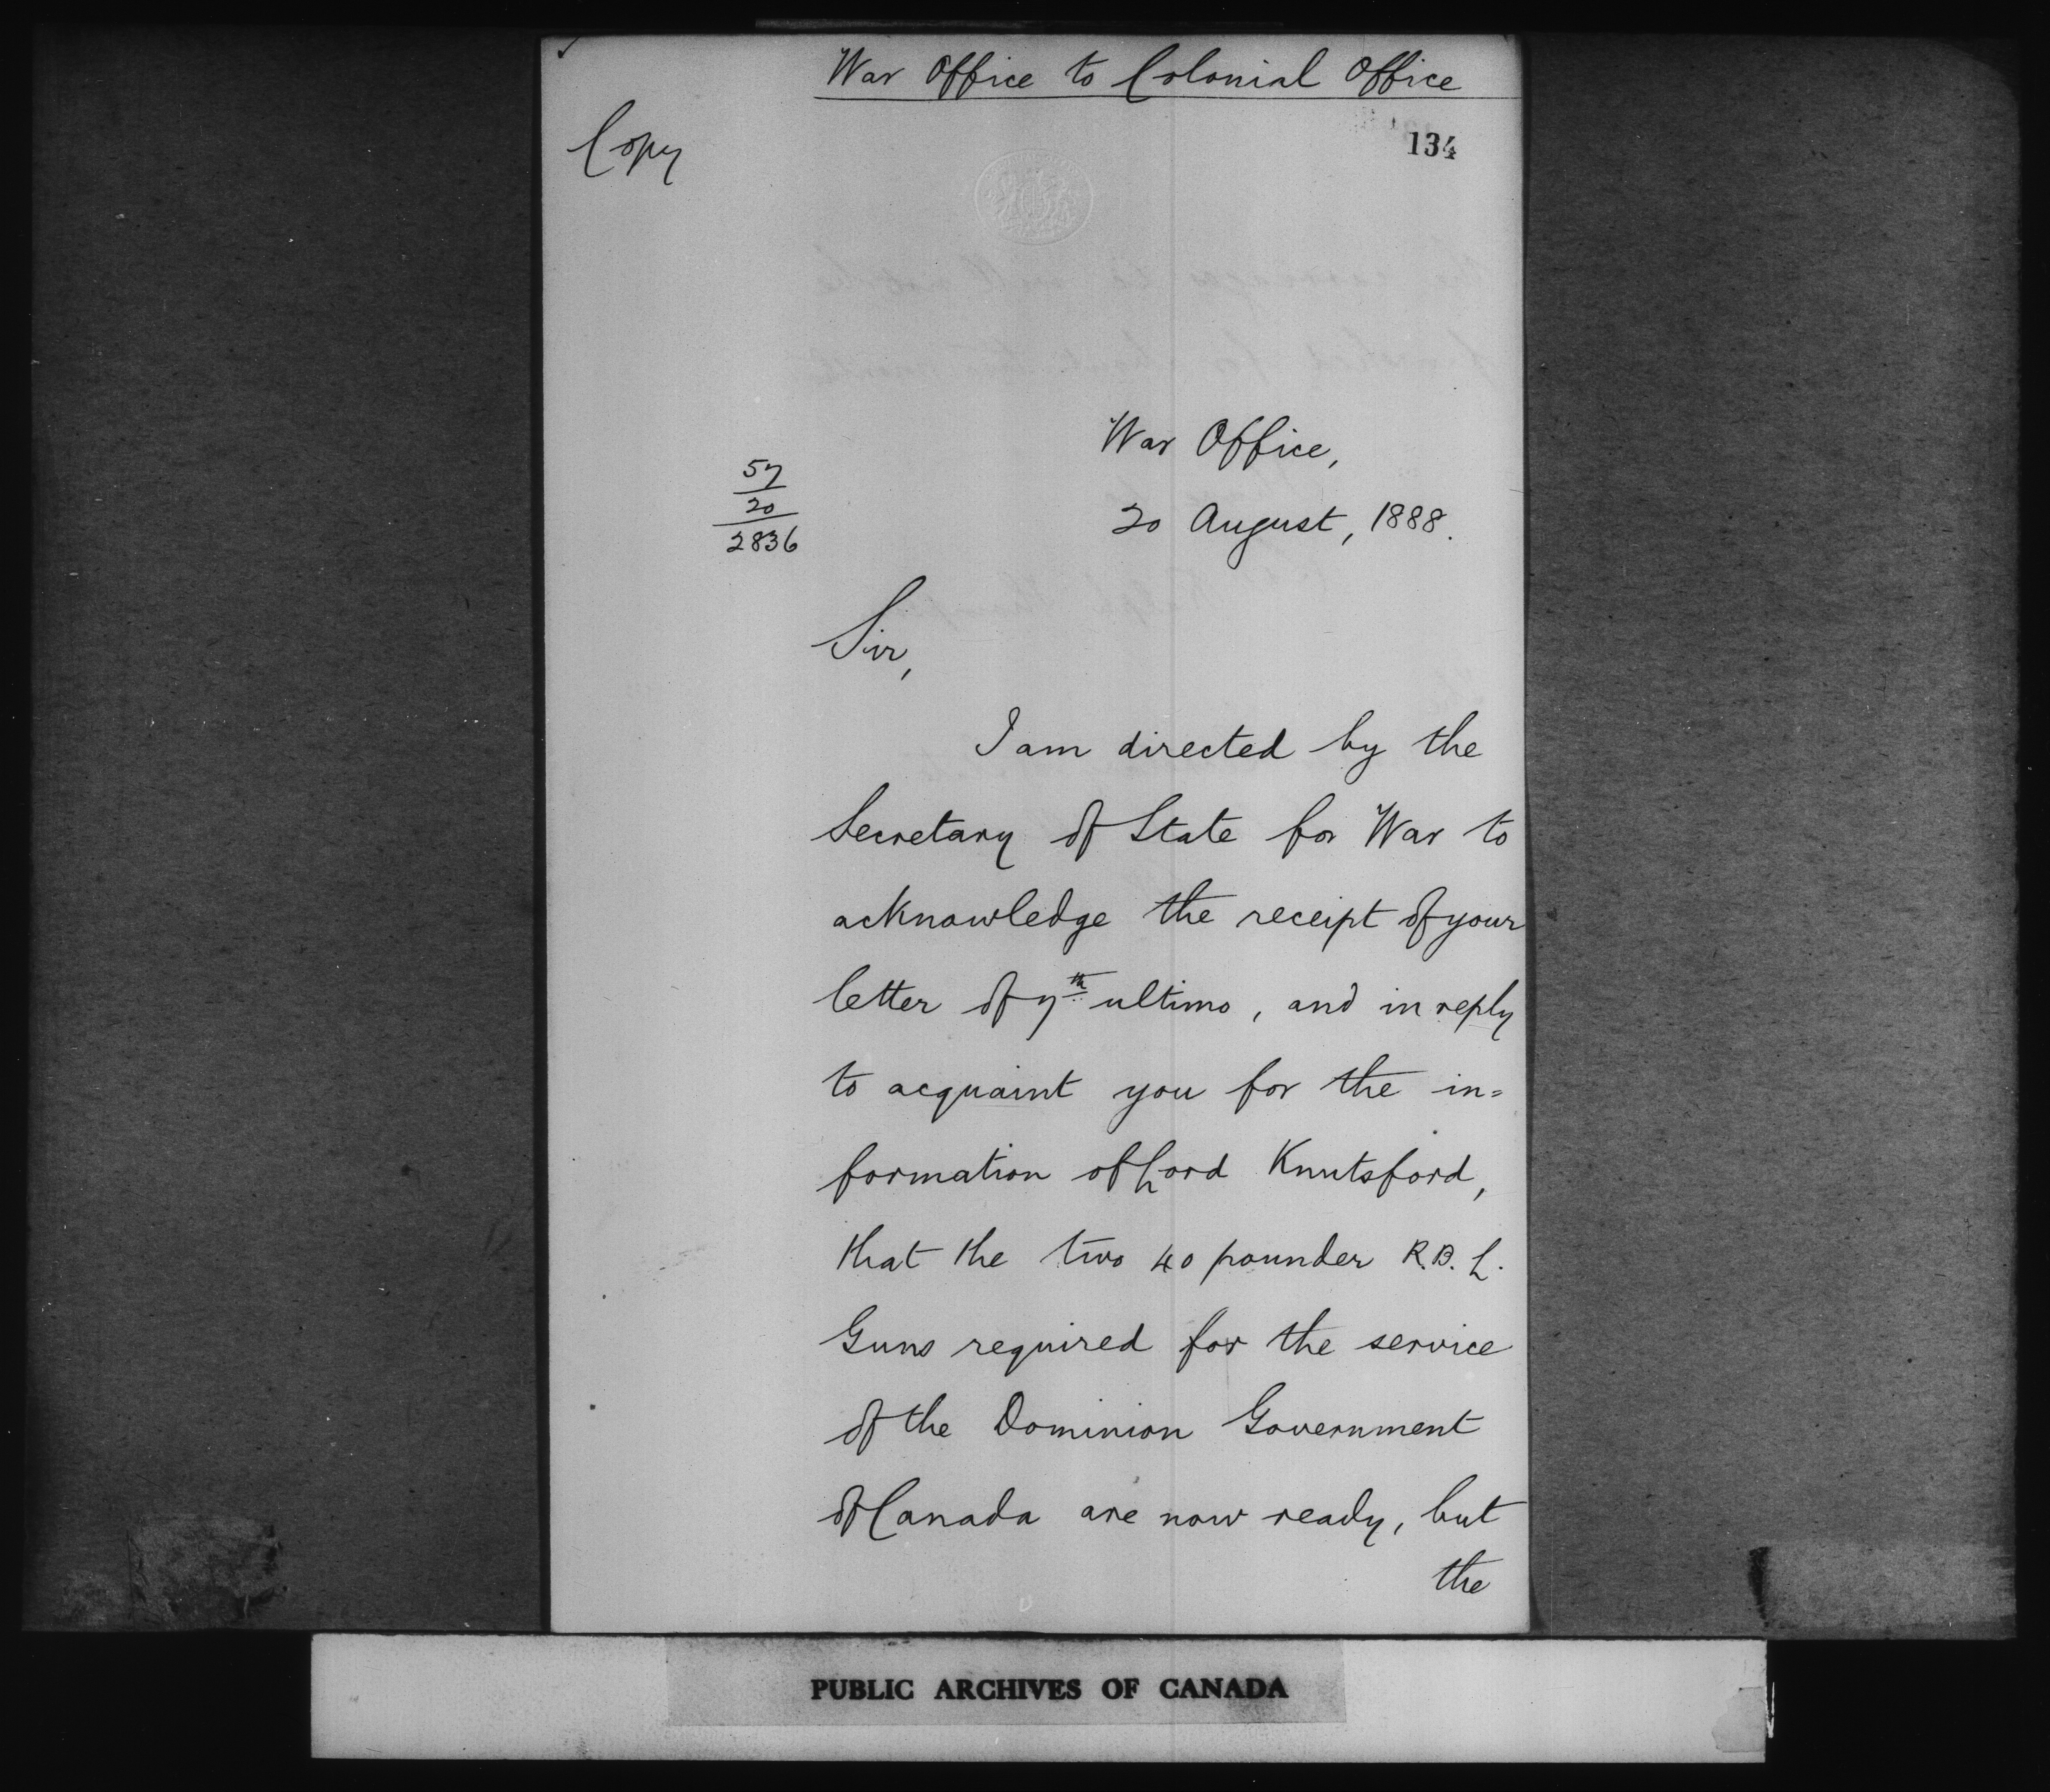 War Office to Colonial Office
Copy
134
War Office,
57
20
2836
20 August, 1888.
Sir,
I am directed by the
Secretary of State for War to
acknowledge the receipt of your
letter of 7th ultimo, and in reply
to acquaint you for the in=
formation of Lord Knutsford,
that the two 40 pounder R.B.L.
Guns required for the service
of the Dominion Government
of Canada are now ready, but
the
PUBLIC ARCHIVES OF CANADA